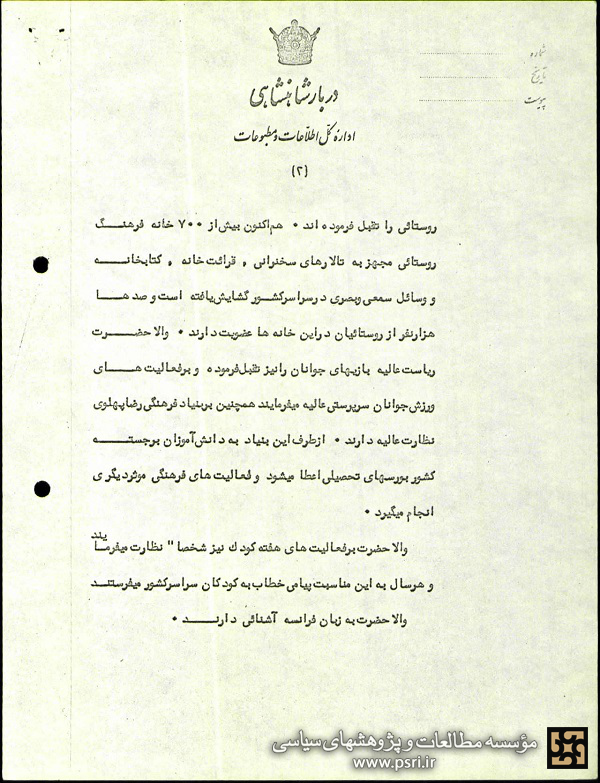 شماره
تاریخ
پیوست
دربار شاهنشاهی
اداره کل اطلاعات و مطبوعات
(۲)
روستائی را تقبل فرموده اند ۰ هم‌اکنون بیش از ۷۰۰ خانه فرهنگ
روستائی مجهز به تالارهای سخنرانی , قرائت خانه , کتابخانه
و وسائل سمعی وبصری درسراسرکشور گشایش‌یافته است و صدها
هزارنفر از روستائیان دراین خانه ها عضویت دارند ۰ والاحضرت
ریاست عالیه بازیهای جوانان رانیز تقبل‌فرموده و برفعالیت های
ورزش‌جوانان سرپرستی‌عالیه میفرمایند همچنین بربنیاد فرهنگی رضاپهلوی
نظارت عالیه دارند ۰ ازطرف این بنیاد به دانش‌آموزان برجسته
کشور بورسهای تحصیلی‌اعطا میشود و فعالیت های فرهنگی موثردیگری
انجام میگیرد ۰
والاحضرت برفعالیت های هفته کودك نیز شخصا" نظارت میفرمایند
و هرسال به این مناسبت پیامی‌خطاب به کودکان سراسرکشور میفرستند
والاحضرت به زبان فرانسه آشنائی دارند ۰
مؤسسه مطالعات و پژوهشهای سیاسی
www.psri.ir